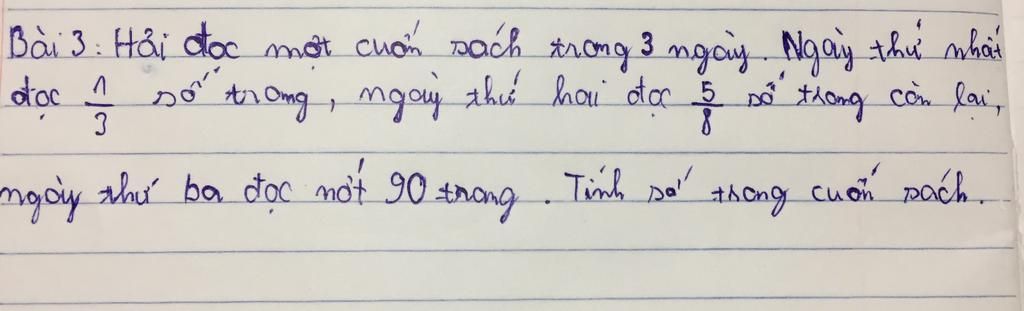 Bài 3: Hải đọc một cuốn sách trong 3 ngày. Ngày thứ nhất
đọc 1/3 số trang, ngày thứ hai đọc 5/8 số trang còn lại,
ngày thứ ba đọc nốt 90 trang. Tính số trang cuốn sách.